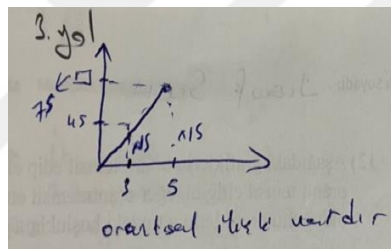 3. yol
75
45
3 5
orantısal ilişki vardır